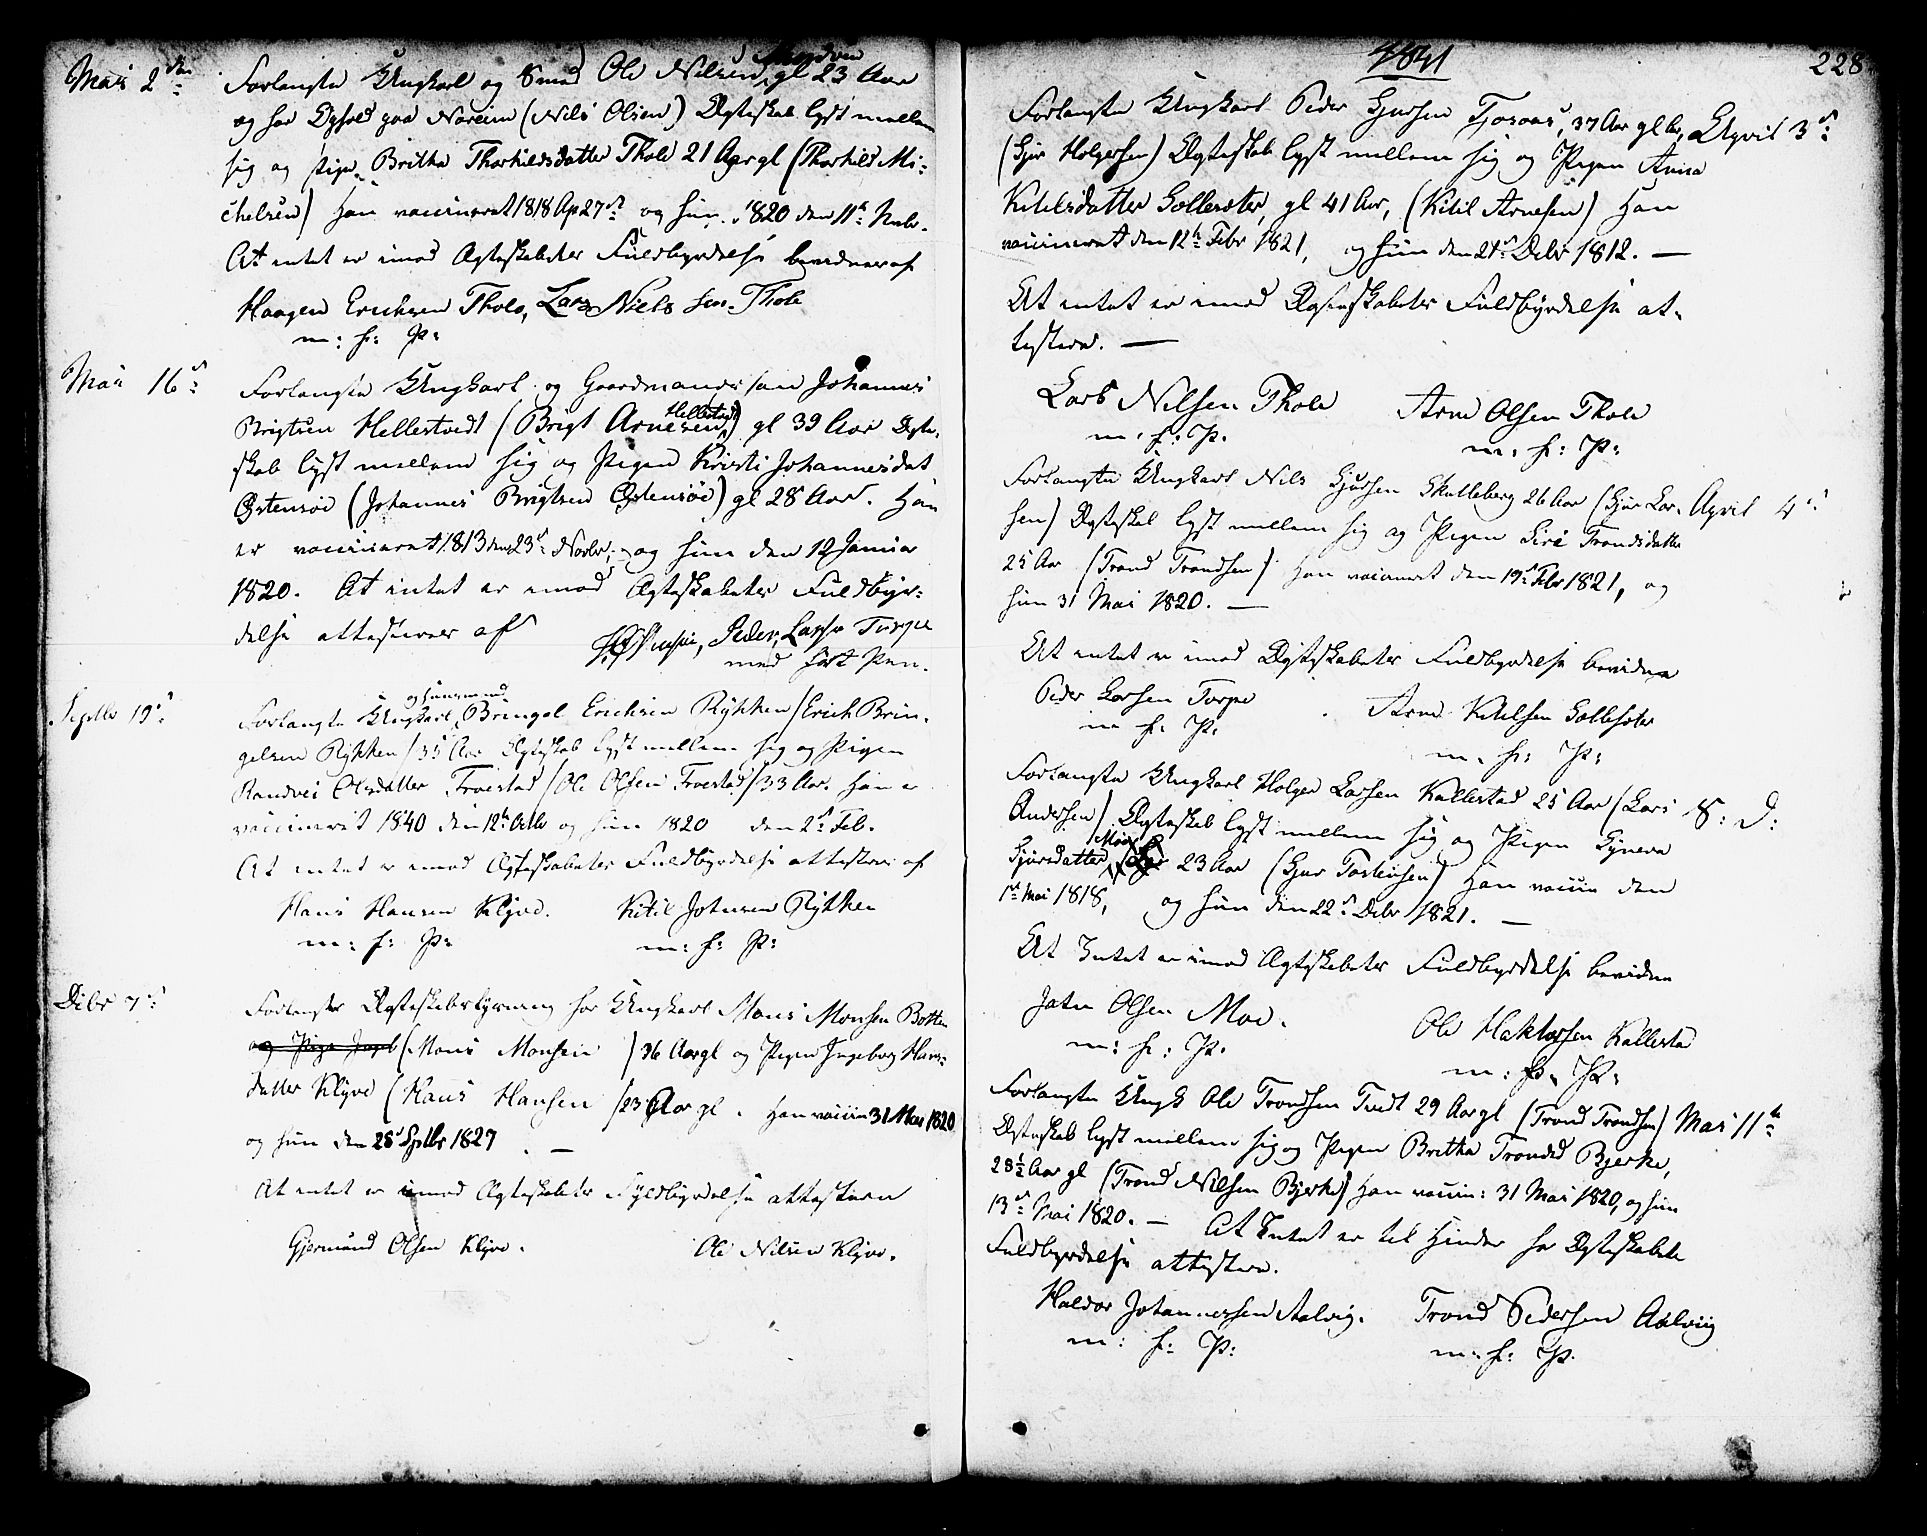 Mai 2den
Forlangte Ungkarl og Smed Ole Nilsen Sandven gl 23 Aar
og har Ophold paa Noreim (Nils Olsen) Ægteskab lyst mellem
sig og Pige Britha Thorkildsdatter Thole 21 Aar gl (Thorkild Mi-
chelsen) Han vaccineret 1818 Ap 27de og hun 1820 den 11te
At intet er imod Ægteskabets Fuldbyrdelse bevidner af
Haagen Erichsen Thole, Lars Niels Sen Thole
m: f: P:
Mai 16de
Forlangte Ungkarl og Gaardmands søn Johannes
Brigtsen Hellestvedt (Brigt Arnesen Hellestvedt) gl 39 Aar Ægte-
skab lyst mellem sig og Pigen Kristi Johannesdat
Østensøe (Johannes Brigtsen Østensøe) gl 28 Aar. Han
er vaccineret 1813 den 23de Novbr, og hun den 12 Januar
1820. At intet er imod Ægteskabets Fuldbyr-
delse attesterer af Peder Larssen Torpe
med ført Pen.
Septbr 19de
Forlangte Ungkarl og Huusmand Bringel Erichsen Rykken /Erich Brin-
gelsen Rykken/ 35 Aar Ægteskab lyst mellem sig og Pigen
Randvei Olsdatter Froestad /Ole Olsen Froestad/ 33 Aar. Han er
vaccineret 1840 den 12te Octb og hun 1820 den 2de Feb.
At intet er imod Ægteskabets Fuldbyrdelse attesterer af
Hans Hansen Klyve. Kitil Johnsen Rykken
m: f: P: m: f: P:
Decbr 7de
Forlangtes Ægteskabslysning for Ungkarl Mons Monsen Botten
og Pige Ingeb (Mons Monsen) 36 Aar gl og Pigen Ingeborg Hans-
datter Klyve (Hans Hansen) 23 Aar gl. Han vaccin 31 Mai 1820
og hun den 28de Septbr 1827. —
At intet er imod Ægteskabets Fyldbyrdelse attestere
Gjermund Olsen Klyve. Ole Nilsen Klyve.
1841
228
Forlangte Ungkarl Peder Sjursen Tjoraas, 37 Aar gl April 3de
(Sjur Holgersen) Ægteskab lyst mellem sig og Pigen Anna
Kitilsdatter Sollesæter, gl 41 Aar, (Kitil Arnesen) Han
vaccineret den 12te Febr 1821, og hun den 21de Debr 1812. —
At intet er imod Ægteskabets Fuldbyrdelse at-
testere. —
Lars Nilsen Thole Arne Olsen Thole
m: f: P: m: f: P:
Forlangte Ungkarl Nils Sjursen Skutleberg 26 Aar (Sjur Lar- April 4de
sen) Ægteskab lyst mellem sig og Pigen Siri Trondsdatter
25 Aar (Trond Trondsen) Han vaccineret den 19de Febr 1821, og
hun 31 Mai 1820. —
At intet er imod Ægteskabets Fuldbyrdelse bevidne
Peder Larsen Torpe Arne Kitilsen Sollesæter
m: f: P: m: f: P:
Forlangte Ungkarl Holger Larsen Kallestad 25 Aar (Lars S: D:
Andersen) Ægteskab lyst mellem sig og Pigen Synneva
Sjursdatter Moe 23 Aar (Sjur Torstensen) Han vaccin den
1ste Mai 1818, og hun den 22de Debr 1821. —
At Intet er imod Ægteskabets Fuldbyrdelse bevidne
John Olsen Moe. Ole Haktorsen Kallesta
m: f: P: m: f: P:
Forlangte Ungk Ole Trondsen Tvedt 29 Aar gl (Trond Trondsen) Mai 11te
Ægteskab lyst mellem sig og Pigen Britha Trondsd Bjerke,
28½ Aar gl (Trond Nilsen Bjerke) Han vaccin: 31 Mai 1820, og hun
13de Mai 1820. — At Intet er til Hinder for Ægteskabets
Fuldbyrdelse attestere.
Haldor Johannessen Aalvig. Trond Pedersen Aalviig
m: f: P: m: f: P: